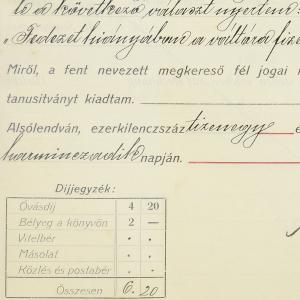 le a következő választ nyertem:
"Fedezet hiányában a váltóra fize
Miről, a fent nevezett megkereső fél jogai
tanusitványt kiadtam.
Alsólendván, ezerkilenczszáz tizenegy é
harminczadik napján.
Díjjegyzék:
Óvásdíj 4 20
Bélyeg a könyvön 2 —
Vitelbér . .
Másolat . .
Közlés és postabér . .
Összesen 6. 20